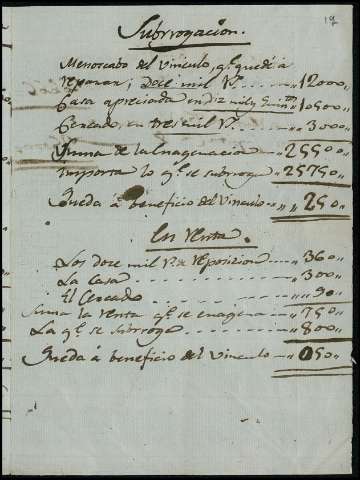 19
Subrrogacion.
Menoscabo del vinculo, q.e quedé à
reparar; Doce mil r.s - - - „12000„
Casa apreciada en diez mil y quin.tos „10500„
Cercado, en tres mil r.s - - - „3000„
Suma de la Enagenacion - - „25500„
Importa lo q.e se subroga „25750„
Queda à beneficio del Vinculo - „„250„
En Renta.
Los doce mil r.s de reposicion - - - „360„
La Casa - - - - - - - „300„
El Cercado - - - - - - „„90„
Suma la renta q.e se enagena - „750„
La q.e se subroga - - - - - „800„
Queda à beneficio del vinculo - „050„